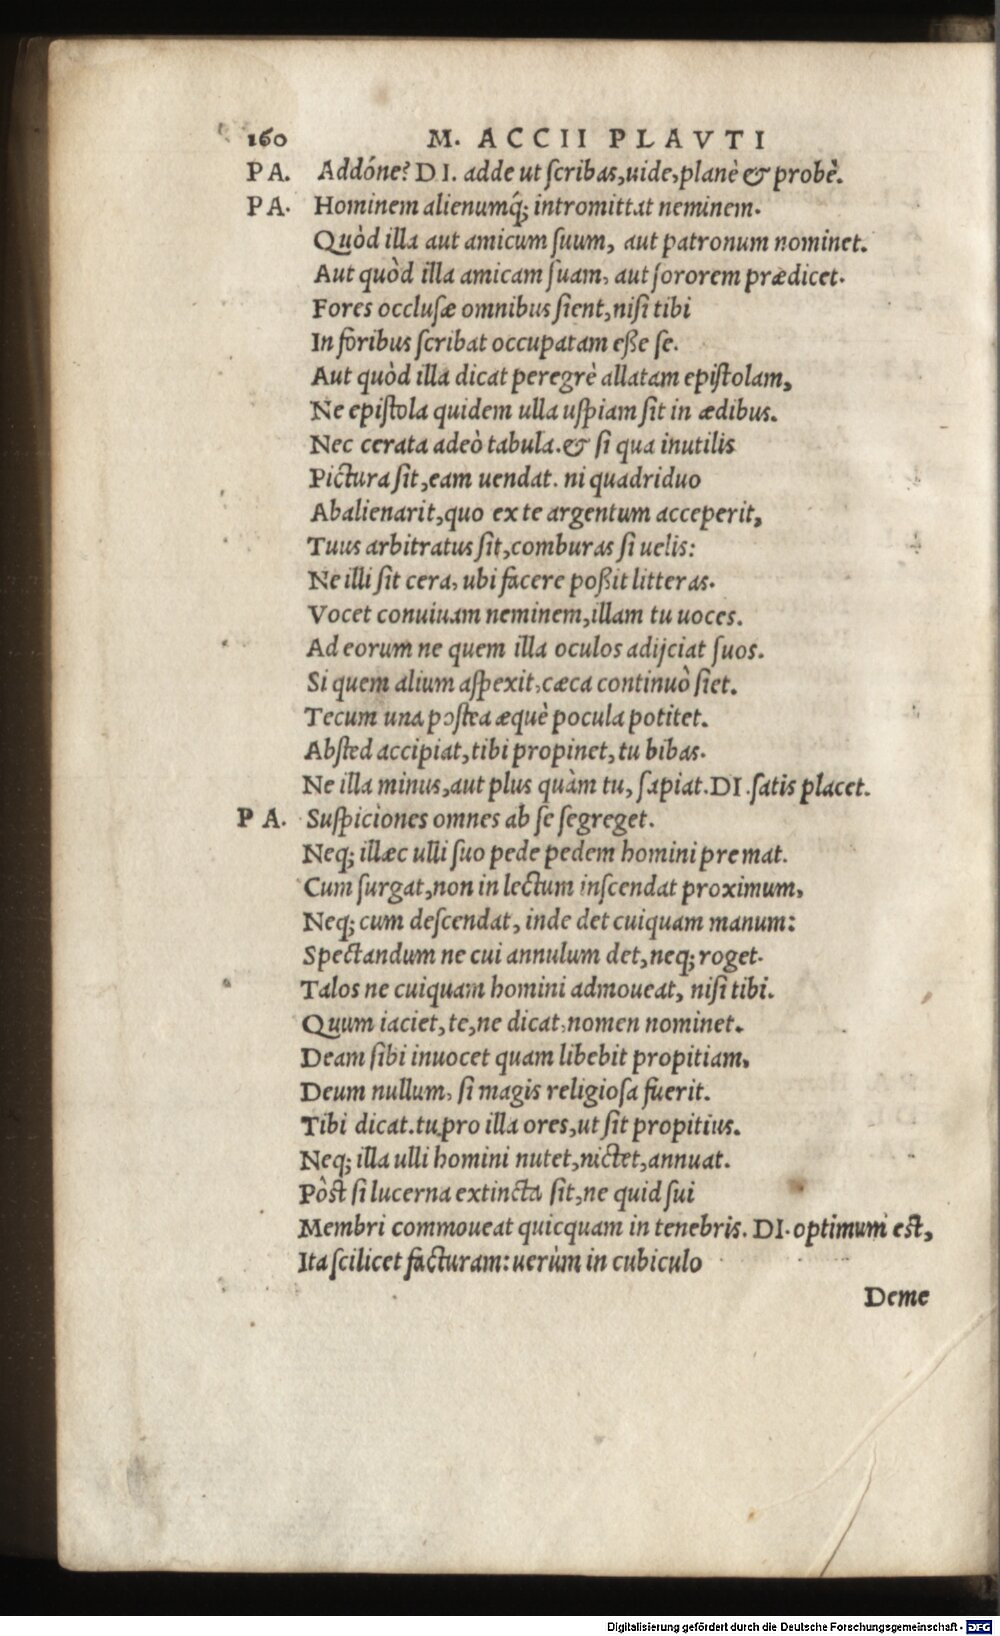 160 M. ACCII PLAVTI
PA. Addóne? DI. adde ut ſcribas, uide, planè & probè.
PA. Hominem alienumq́; intromittat neminem.
Quòd illa aut amicum ſuum, aut patronum nominet.
Aut quòd illa amicam ſuam, aut ſororem prædicet.
Fores occluſæ omnibus ſient, niſi tibi
In foribus ſcribat occupatam eſſe ſe.
Aut quòd illa dicat peregrè allatam epiſtolam,
Ne epiſtola quidem ulla uſpiam ſit in ædibus.
Nec cerata adeò tabula. & ſi qua inutilis
Pictura ſit, eam uendat. ni quadriduo
Abalienarit, quo ex te argentum acceperit,
Tuus arbitratus ſit, comburas ſi uelis:
Ne illi ſit cera, ubi facere poſſit litteras.
Vocet conuiuam neminem, illam tu uoces.
Ad eorum ne quem illa oculos adijciat ſuos.
Si quem alium aſpexit, cæca continuò ſiet.
Tecum una poſtea æquè pocula potitet.
Abſted accipiat, tibi propinet, tu bibas.
Ne illa minus, aut plus quàm tu, ſapiat. DI. ſatis placet.
PA. Suſpiciones omnes ab ſe ſegreget.
Neq; illæc ulli ſuo pede pedem homini premat.
Cum ſurgat, non in lectum inſcendat proximum,
Neq; cum deſcendat, inde det cuiquam manum:
Spectandum ne cui annulum det, neq; roget.
Talos ne cuiquam homini admoueat, niſi tibi.
Quum iaciet, te, ne dicat, nomen nominet.
Deam ſibi inuocet quam libebit propitiam,
Deum nullum, ſi magis religioſa fuerit.
Tibi dicat. tu pro illa ores, ut ſit propitius.
Neq; illa ulli homini nutet, nictet, annuat.
Pòſt ſi lucerna extincta ſit, ne quid ſui
Membri commoueat quicquam in tenebris. DI. optimum eſt,
Ita ſcilicet facturam: uerùm in cubiculo
Deme
Digitalisierung gefördert durch die Deutsche Forschungsgemeinschaft - DFG